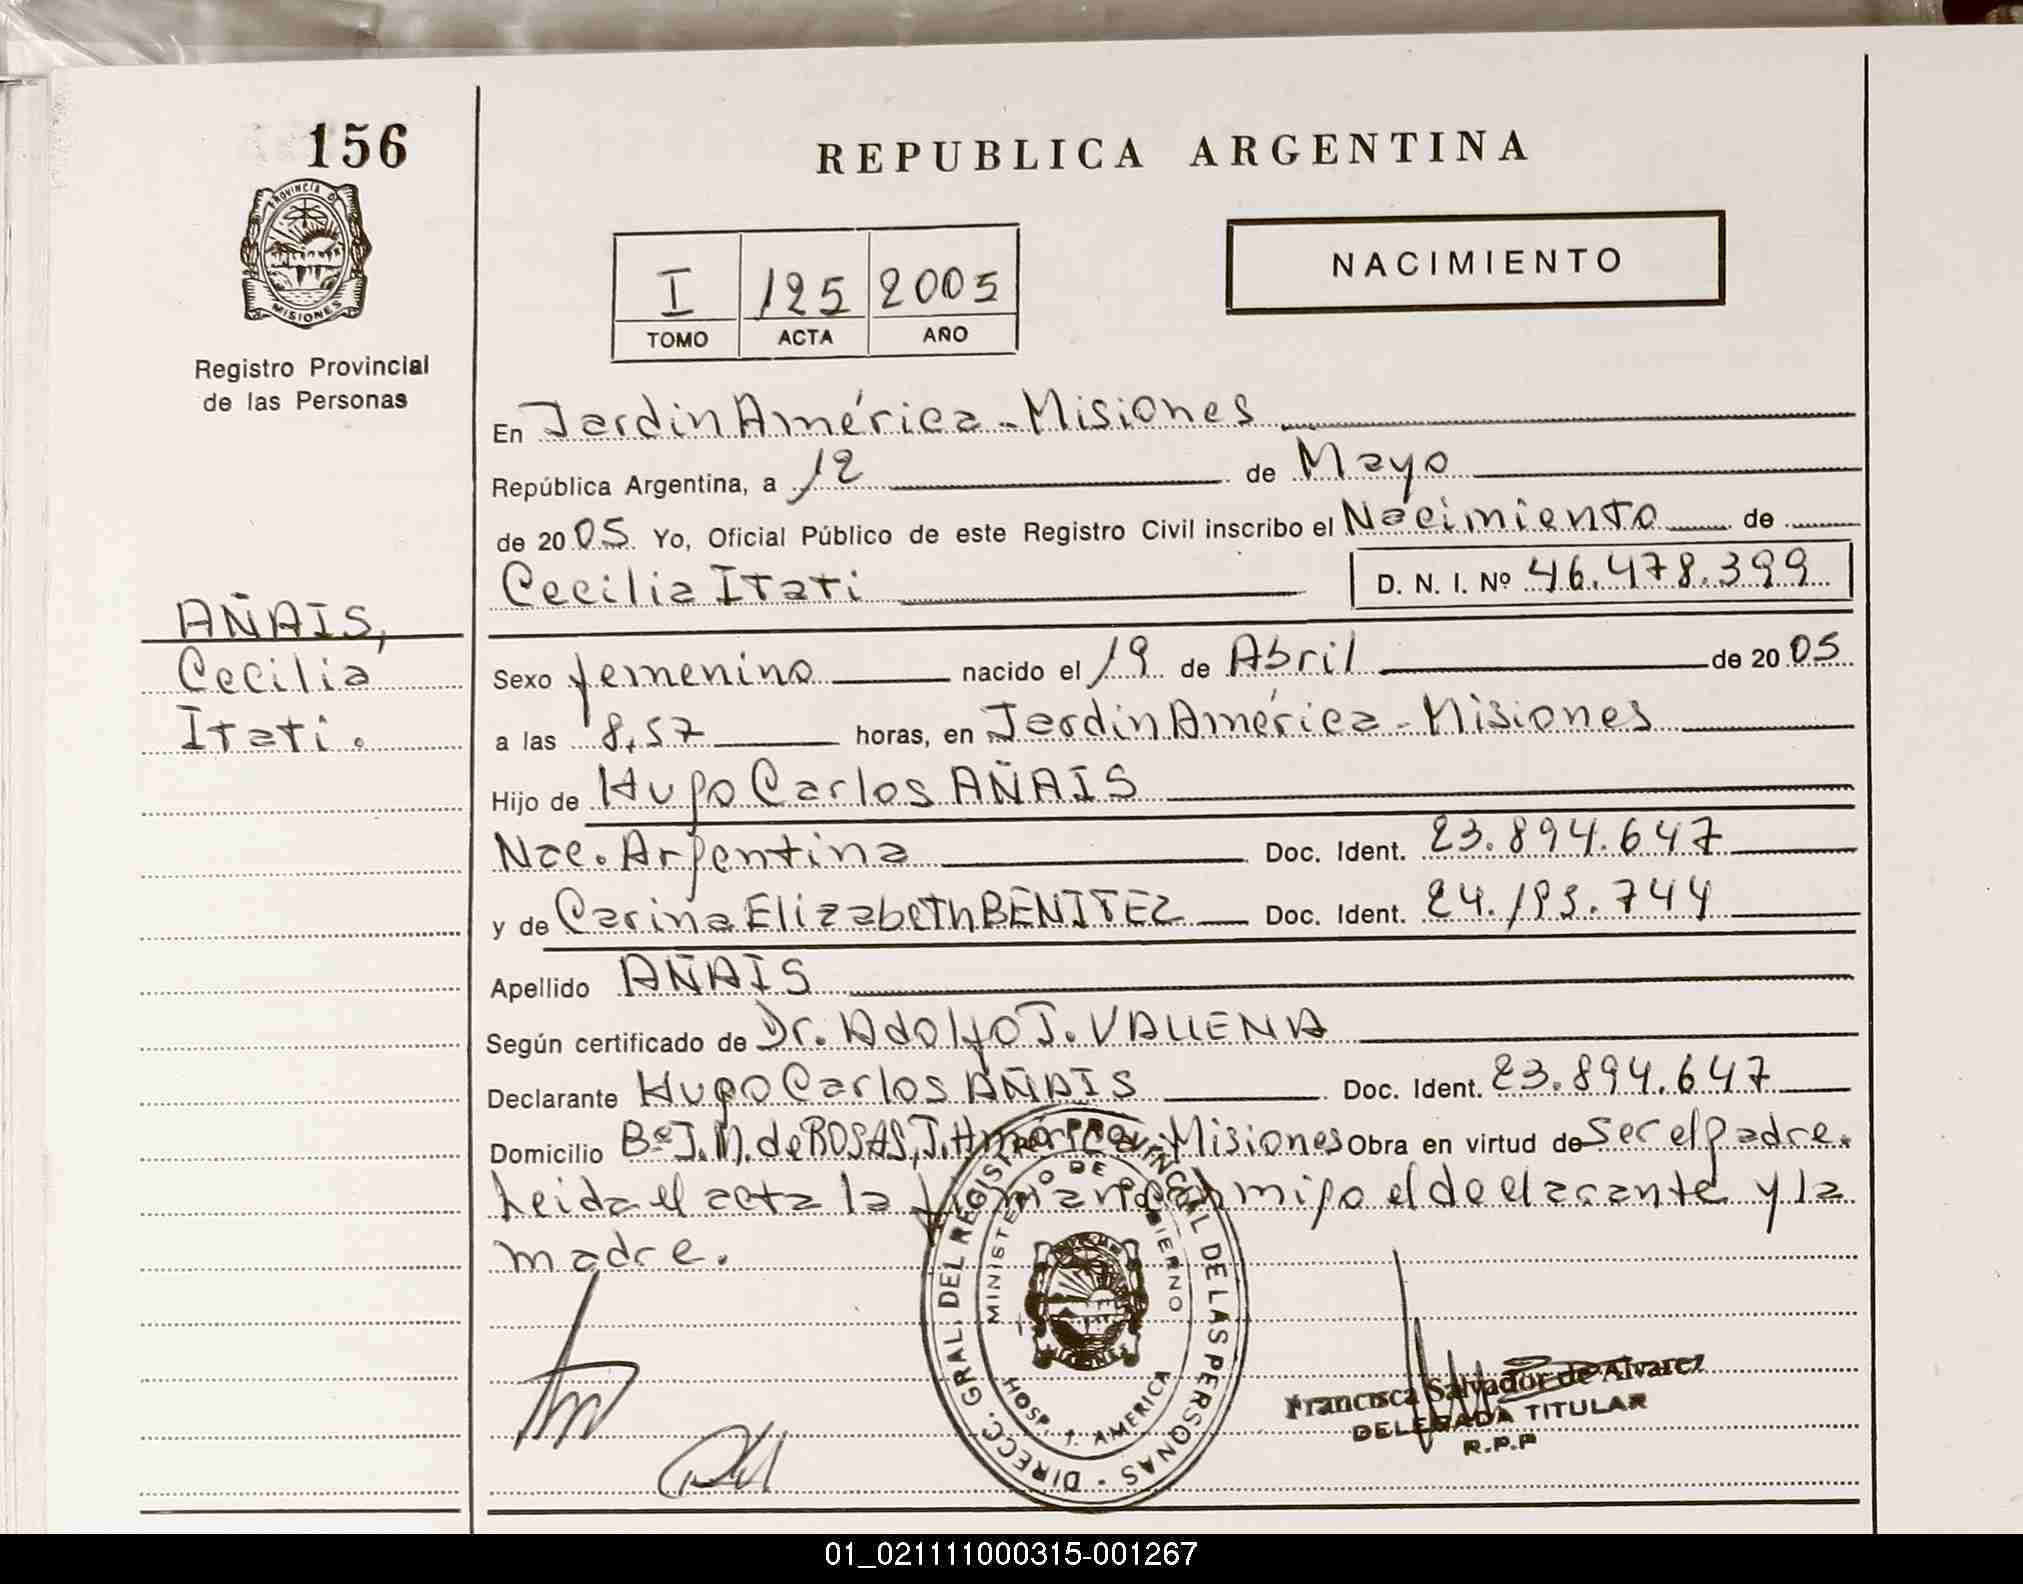 156
PROVINCIA DE
MISIONES
Registro Provincial
de las Personas
REPUBLICA ARGENTINA
NACIMIENTO
I 125 2005
TOMO ACTA AÑO
En Jardin América - Misiones
República Argentina, a 12 de Mayo
de 2005 Yo, Oficial Público de este Registro Civil inscribo el Nacimiento de
Cecilia Itati D. N. I. Nº 46.478.399
AÑAIS,
Cecilia
Itati.
Sexo femenino nacido el 19 de Abril de 2005
a las 8,57 horas, en Jardin América - Misiones
Hijo de Hugo Carlos AÑAIS
Nac. Argentina Doc. Ident. 23.894.647
y de Carina Elizabeth BENITEZ Doc. Ident. 24.193.744
Apellido AÑAIS
Según certificado de Dr. Adolfo J. VALLENA
Declarante Hugo Carlos AÑAIS Doc. Ident. 23.894.647
Domicilio Bº J. M. de ROSAS, J. América - Misiones Obra en virtud de ser el padre.
Leida el acta la firman conmigo el declarante y la
madre.
DIRECC. GRAL. DEL REGISTRO PROVINCIAL DE LAS PERSONAS -
MINISTERIO DE GOBIERNO
MISIONES
HOSP. J. AMERICA
Francisca Salvador de Alvarez
DELEGADA TITULAR
R.P.P
01_021111000315-001267